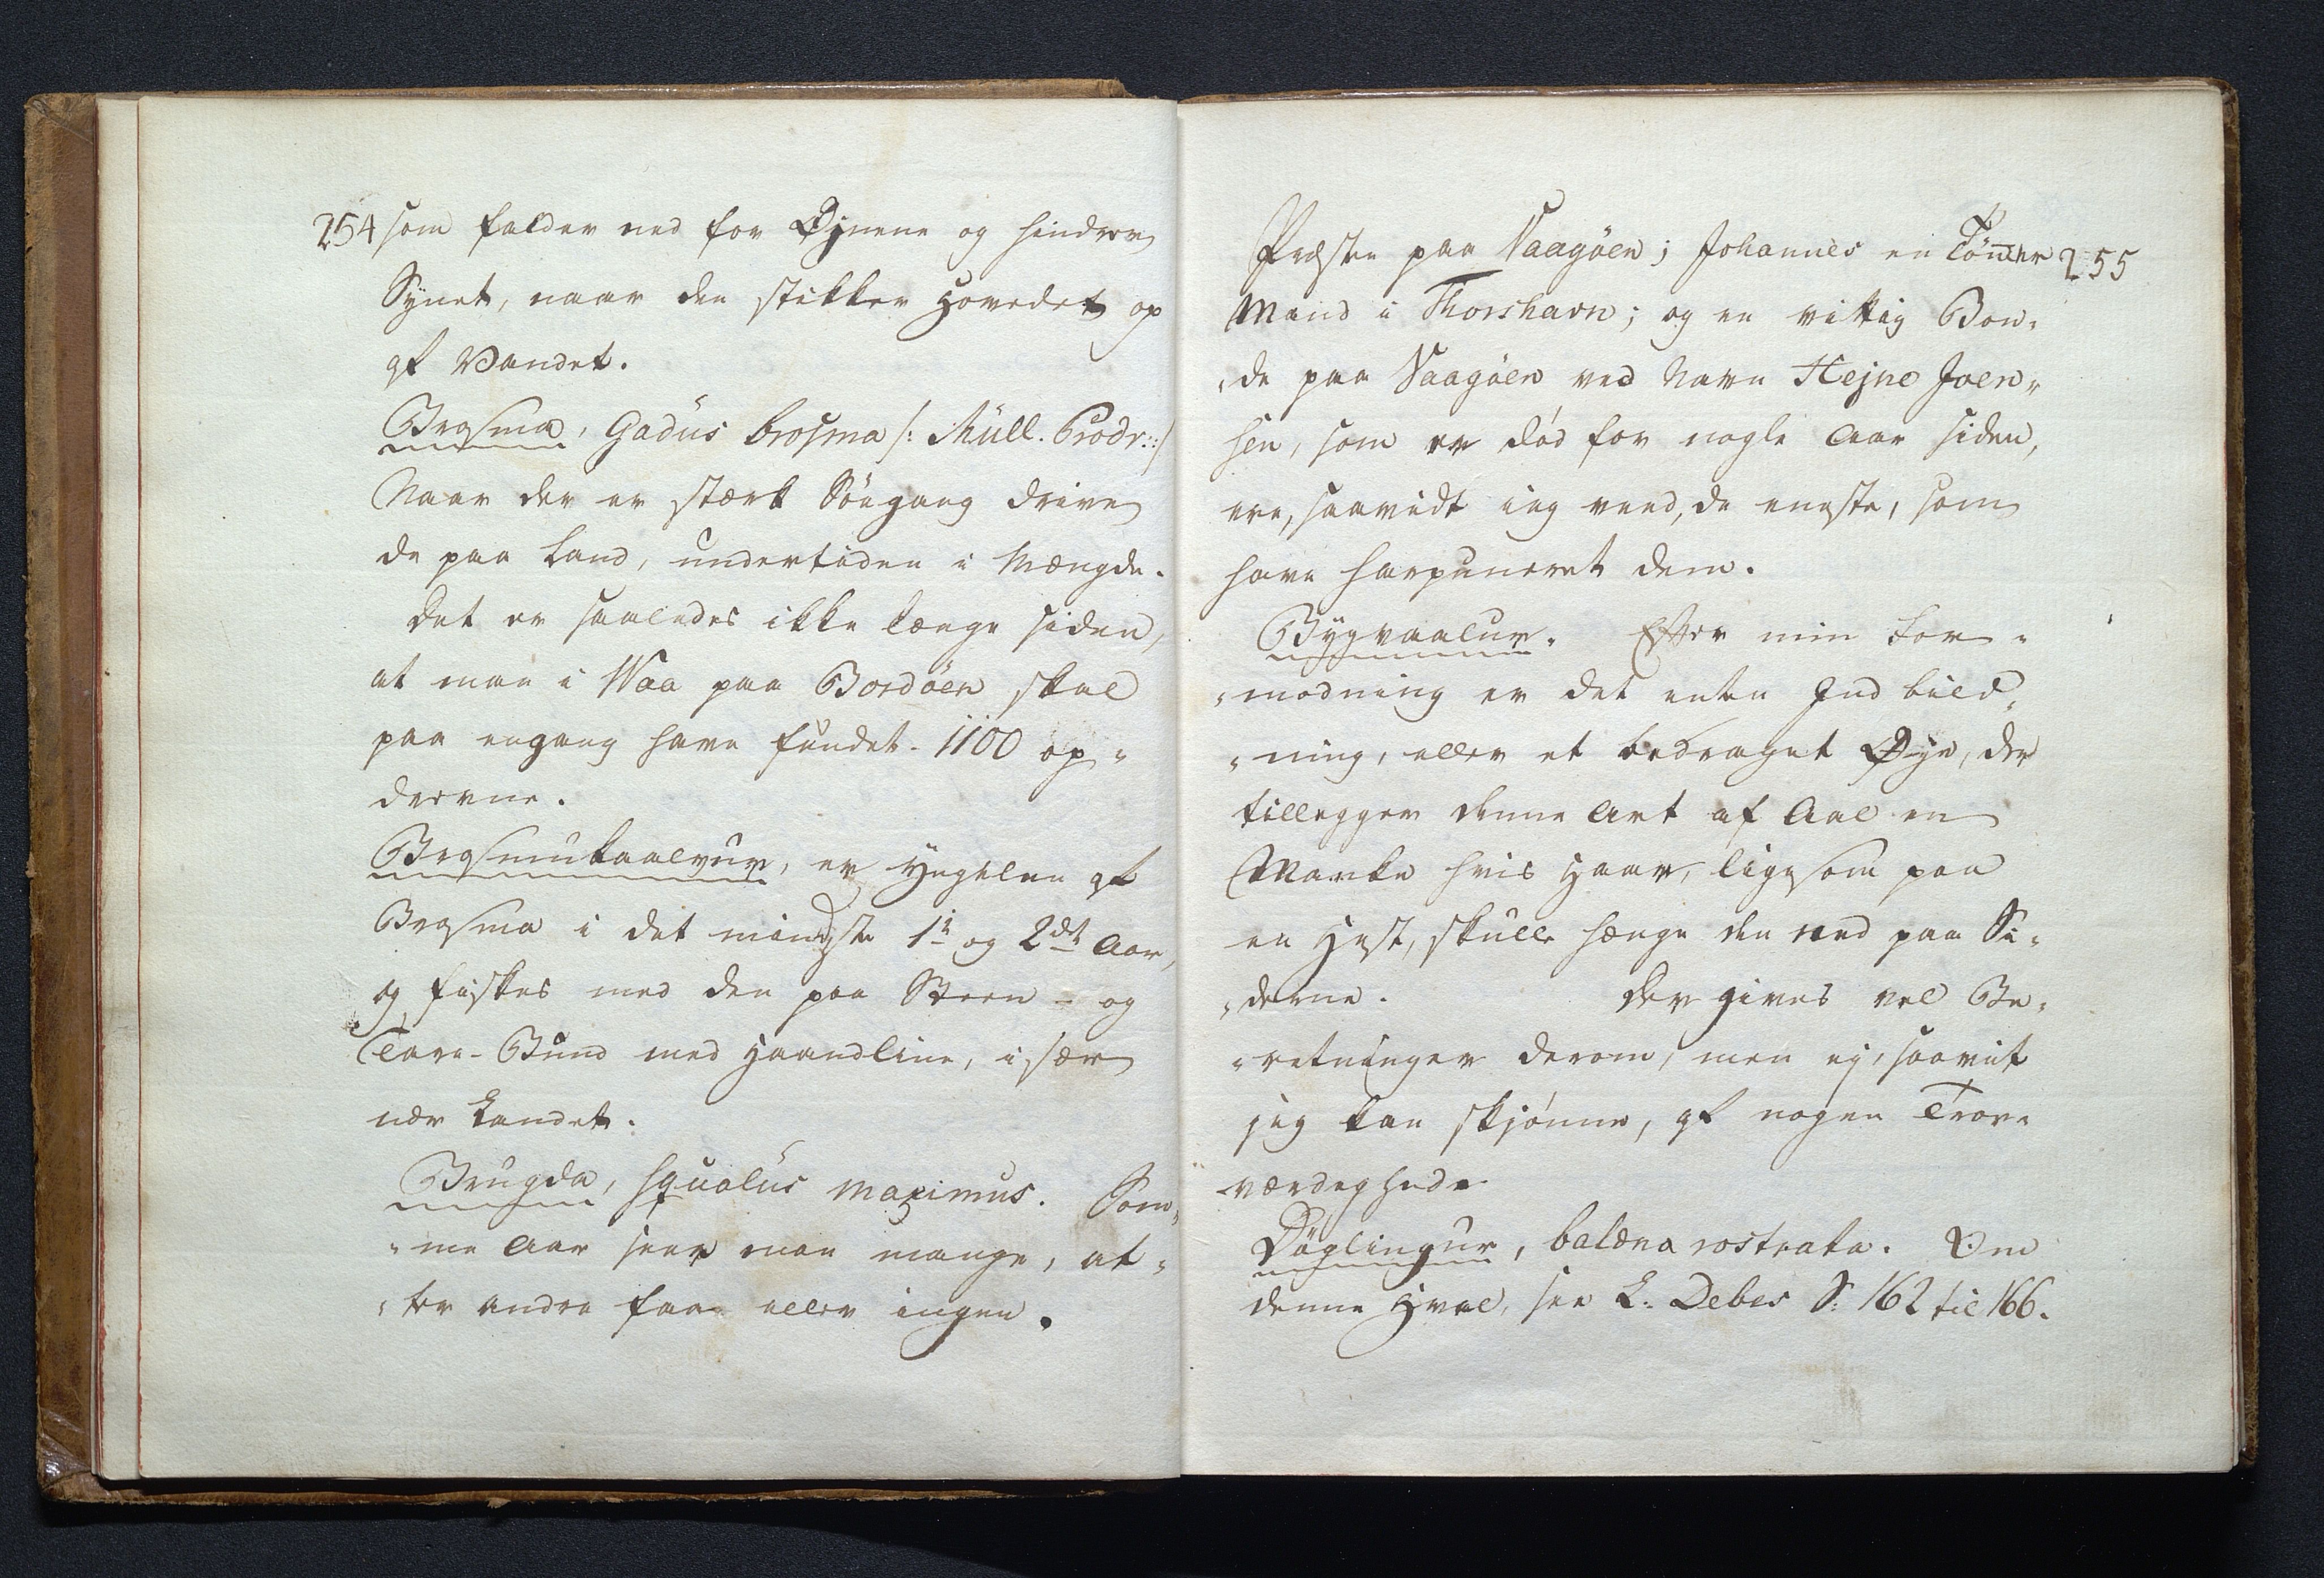 254 som falder ned for Øjnene og hindrer
Synet, naar den stikker Hovedet op
af Vandet.
Brosma, Gadus brosma /: Müll. Prodr: :/
Naar der er stærk Söegang drive
de paa Land, undertiden i Mængde.
Det er saaledes ikke længe siden,
at man i Waa paa Bordöen skal
paa engang have fundet 1100 op-
drevne.
Brosmukaalvur, er Yngelen af
Brosma i det mindste 1te og 2det Aar,
og fiskes med den paa Steen- og
Tare-Bund med Haandline, især
nær Landet.
Brugda, squalus maximus. Som-
-me Aar seer man mange, at-
-ter andre faae eller ingen.
Præsten paa Vaagöen; Johannes en Tönder 255
Mand i Thorshavn; og en vittig Bon-
-de paa Vaagöen ved Navn Hejne Joen-
sen, som er död for nogle Aar siden,
ere, saavidt ieg veed, de eneste, som
have harpuneret dem.
Bygvaalur. Efter min For-
-modning er det enten Indbild-
-ning, eller et bedraget Øye, der
tillegger denne Art af Aal en
Manke hvis Haar, ligesom paa
en Hest, skulle hænge den ned paa Si-
-derne. Der gives vel Be-
-retninger derom, men ej, saavit
jeg kan skjönne, af nogen Tro-
værdighed.
Döglingur, balæna rostrata. Om
denne Hval, see L: Debes S: 162 til 166.